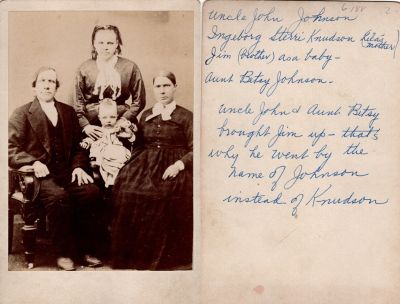 6/88 2
Uncle John Johnson
Ingeborg Sterri Knudson (Lila's mother)
Jim (brother) as a baby -
Aunt Betsy Johnson -
Uncle John & Aunt Betsy
brought Jim up - that's
why he went by the
name of Johnson
instead of Knudson